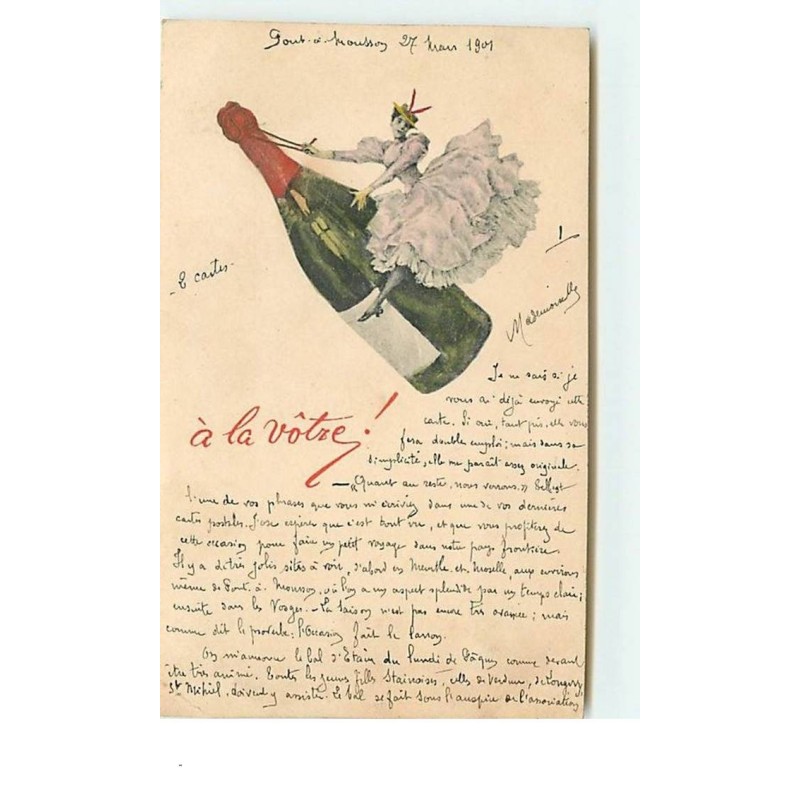 Pont-à-Mousson 27 Mars 1901
1
2 cartes
Mademoiselle
à la vôtre!
Je ne sais si je
vous ai déjà envoyé cette
carte. Si oui, tant pis, elle vous
fera double emploi; mais dans sa
simplicité, elle me paraît assez originale.
— "Quant au reste, nous verrons." Telle est
l'une de vos phrases que vous m'écriviez dans une de vos dernières
cartes postales. J'ose espérer que c'est tout vu, et que vous profiterez de
cette occasion pour faire un petit voyage dans notre pays frontière.
Il y a de très jolis sites à voir, d'abord en Meurthe-et-Moselle, aux environs
même de Pont-à-Mousson, où l'on a un aspect splendide par un temps clair;
ensuite dans les Vosges. - La saison n'est pas encore très avancée; mais
comme dit le proverbe: l'Occasion fait le larron.
On m'annonce le bal d'Etain du lundi de Pâques comme devant
être très animé. Toutes les jeunes filles Stainoises, celles de Verdun, de Longwy,
St Mihiel, doivent y assister. Le bal se fait sous l'auspice de l'association